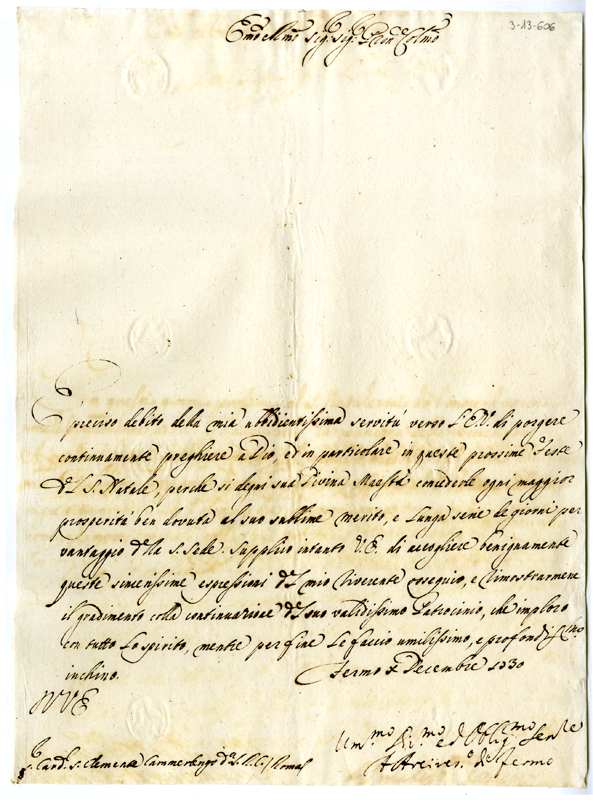 3-13-606
Em̃o e Rm̃o Sig.r Sig.r Pron̄e Colm̃o
È preciso debito della mia ubbidientissima servitù verso l'E.V. di porgere
continuamente preghiere a Dio, ed in particolare in queste prossime Feste
del S. Natale, perche si degni sua Divina Maestà concederle ogni maggior
prosperità ben dovuta al suo sublime merito, e lunga serie de giorni per
vantaggio della S. Sede. Supplico intanto V.E. di accogliere benignamente
queste sincerissime espressioni del mio riverente ossequio, e dimostrarmene
il gradimento colla continuazione del suo validissimo Patrocinio, che imploro
con tutto lo spirito, mentre per fine le faccio umilissimo, e profondissmo
inchino.
Fermo Decembre 1730
VE
Um.mo Div.mo ed Obblig.mo Ser.re
A Arcives.o di Fermo
S. Card. S. Clemente Cammerlengo di S.R.C. / Roma